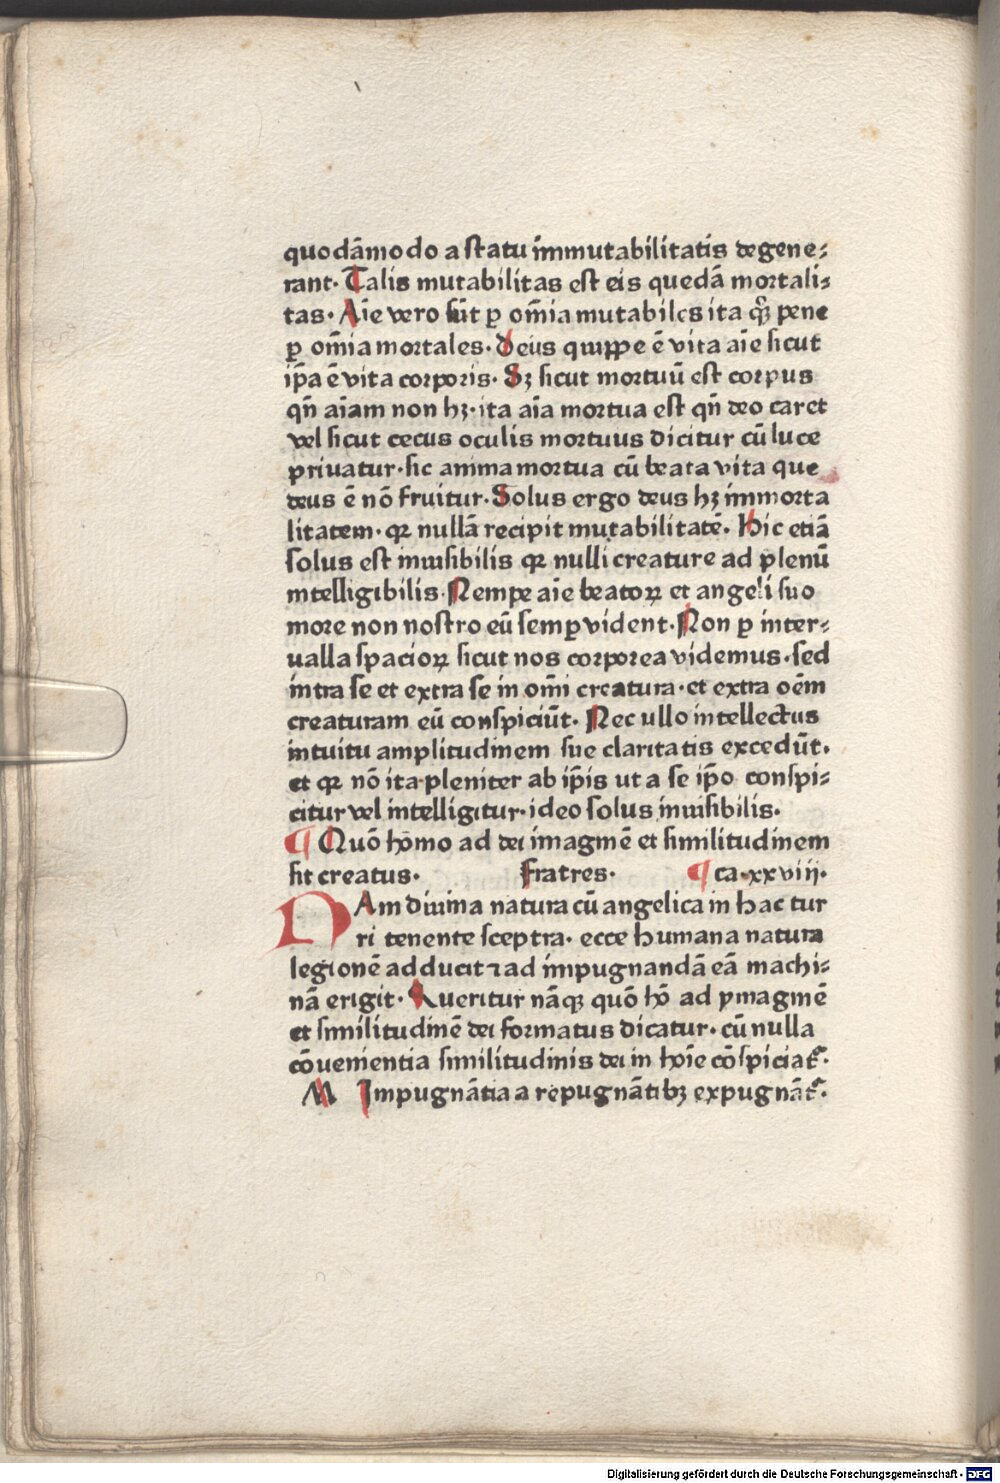 quodāmodo a statu immutabilitatis degene⸗
rant. Talis mutabilitas est eis quedā mortali⸗
tas. Aīe vero sūt ꝑ om̄ia mutabiles ita qꝫ pene
ꝑ om̄ia mortales. Deus quippe ē vita aīe sicut
ip̄a ē vita corporis. Sꝫ sicut mortuū est corpus
qn̄ aīam non hꝫ. ita aīa mortua est qn̄ deo caret
vel sicut cecus oculis mortuus dicitur cū luce
priuatur. sic anima mortua cū beata vita que
deus ē nō fruitur. Solus ergo deus hꝫ immorta
litatem. qꝛ nullā recipit mutabilitatē. Hic etiā
solus est inuisibilis qꝛ nulli creature ad plenū
intelligibilis. Nempe aīe beatoꝝ et angeli suo
more non nostro eū semꝑ vident. Non ꝑ inter⸗
ualla spacioꝝ sicut nos corporea videmus. sed
intra se et extra se in om̄i creatura. et extra oēm
creaturam eū conspiciūt. Nec ullo intellectus
intuitu amplitudinem sue claritatis excedūt.
et qꝛ nō ita pleniter ab ip̄is ut a se ip̄o conspi⸗
citur vel intelligitur. ideo solus inuisibilis.
¶ Quō homo ad dei imaginē et similitudinem
sit creatus. fratres. ¶ ca. xxviij.
DAm diuina natura cū angelica in hac tur
ri tenente sceptra. ecce humana natura
legionē adducit ⁊ ad impugnandā eā machi⸗
nā erigit. Queritur nāqꝫ quō hō ad ymaginē
et similitudinē dei formatus dicatur. cū nulla
cōuenientia similitudinis dei in hoīe cōspiciat̄.
M Impugnātia a repugnātibꝫ expugnāt̄.
Digitalisierung gefördert durch die Deutsche Forschungsgemeinschaft - DFG